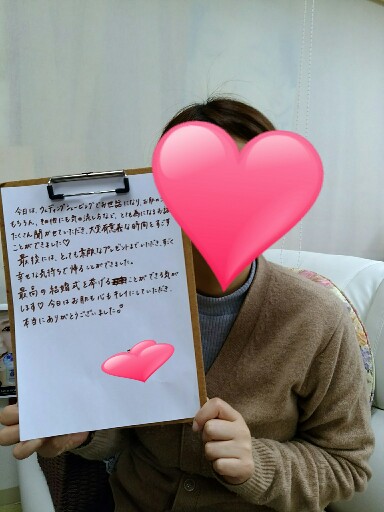 今日は、ウェディングシェービングでお世話になり、お肌の
もちろん、その他にも気の流し方など、とても為になるお話
たくさん聞かせていただき、大変有意義な時間をすごす
ことができました♡
最後には、とても素敵なプレゼントまでいただき、すごく
幸せな気持ちで帰ることができました。
最高の結婚式を挙げることができる気が
します♡ 今日はお肌も心もキレイにしていただき、
本当にありがとうございました。